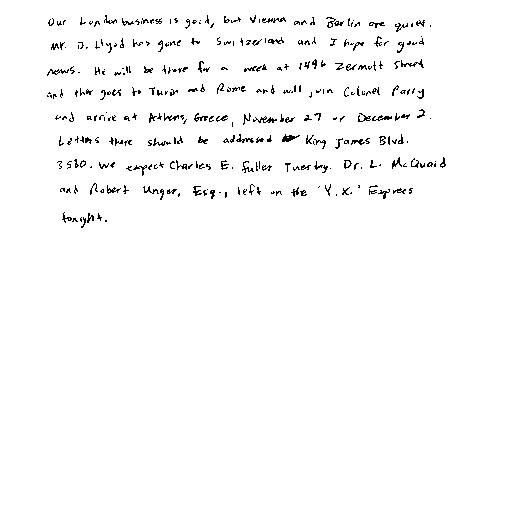 Our London business is good, but Vienna and Berlin are quiet.
Mr. D. Llyod has gone to Switzerland and I hope for good
news. He will be there for a week at 1496 Zermott Street
and then goes to Turin and Rome and will join Colonel Parry
and arrive at Athens, Greece, November 27 or December 2.
Letters there should be addressed King James Blvd.
3580. We expect Charles E. Fuller Tuesday. Dr. L. McQuaid
and Robert Unger, Esq., left on the 'Y.X.' Express
tonight.